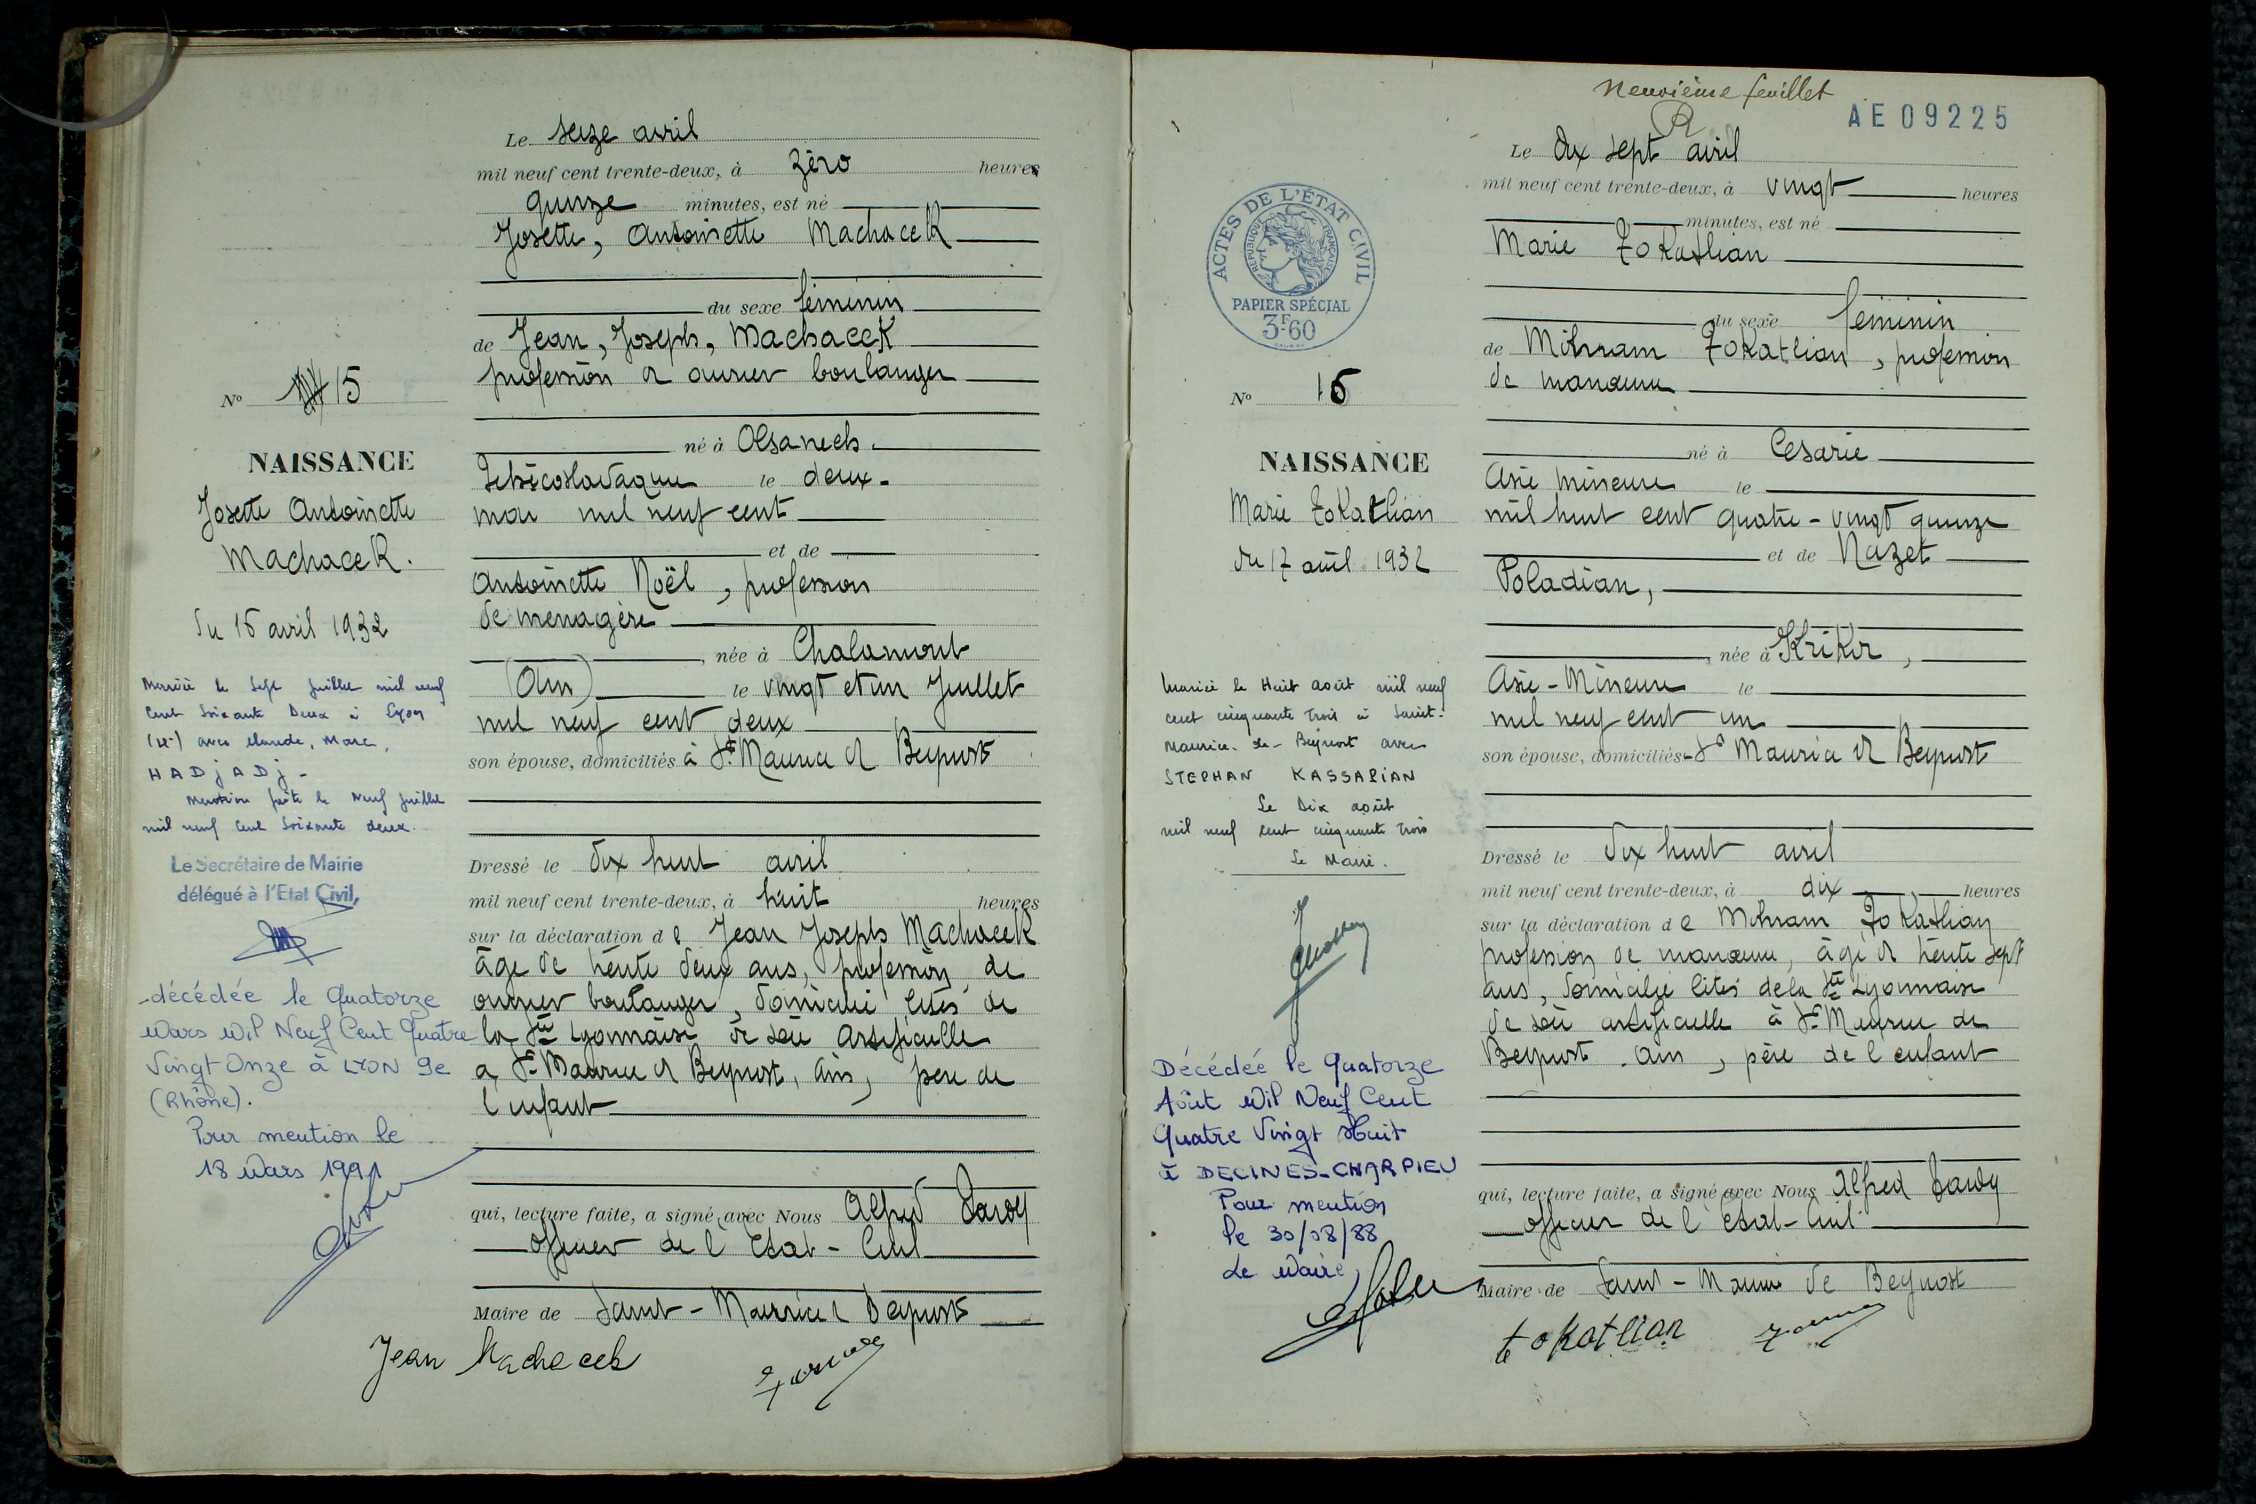 Le seize avril
mil neuf cent trente-deux, à zéro heures
quinze minutes, est né
Josette, Antoinette Machacek
du sexe féminin
de Jean, Joseph, Machacek
profession de ouvrier boulanger
né à Olsanech
Tchécoslovaquie le deux
mai mil neuf cent
et de
Antoinette Noël, profession
de ménagère
, née à Chalamont
(Ain) le vingt et un Juillet
mil neuf cent deux
son épouse, domiciliés à St Maurice de Beynost
Dressé le dix huit avril
mil neuf cent trente-deux, à huit heures
sur la déclaration de Jean Joseph Machacek
âgé de trente deux ans, profession de
ouvrier boulanger, domicilié cités de
la Sté Lyonnaise de soie artificielle
à St Maurice de Beynost, Ain, père de
l'enfant
qui, lecture faite, a signé avec Nous Alfred
officier de l'Etat-Civil
Maire de Saint-Maurice de Beynost
Jean Machacek
No 15
NAISSANCE
Josette Antoinette
Machacek.
du 16 avril 1932
Mariée le sept juillet mil neuf
cent soixante deux à Lyon
avec Claude, Marc,
HADJADJ -
Mention faite le neuf juillet
mil neuf cent soixante deux.
Le Secrétaire de Mairie
délégué à l'Etat Civil,
décédée le Quatorze
Mars Mil Neuf Cent Quatre
Vingt Onze à LYON 9e
(Rhône).
Pour mention le
18 Mars 1991
Neuvième feuillet
AE09225
ACTES DE L'ÉTAT CIVIL
RÉPUBLIQUE FRANÇAISE
PAPIER SPÉCIAL
3F60
No 16
NAISSANCE
Marie Tokatlian
du 17 avril 1932
Mariée le Huit août mil neuf
cent cinquante trois à Saint-
Maurice-de-Beynost avec
STEPHAN KASSARIAN
Le Dix août
mil neuf cent cinquante trois
Le Maire.
Décédée le Quatorze
Août Mil Neuf Cent
Quatre Vingt Huit
à DECINES-CHARPIEU
Pour mention
le 30/08/88
Le Maire,
Le dix sept avril
mil neuf cent trente-deux, à vingt heures
minutes, est né
Marie Tokatlian
du sexe féminin
de Mihram Tokatlian, profession
de manœuvre
né à Cesarie
Asie mineure le
mil huit cent quatre-vingt quinze
et de Nazet
Poladian,
, née à Krikir,
Asie-Mineure le
mil neuf cent un
son épouse, domiciliés St Maurice de Beynost
Dressé le dix huit avril
mil neuf cent trente-deux, à dix heures
sur la déclaration de Mihram Tokatlian
profession de manœuvre, âgé de trente sept
ans, domicilié cités de la Sté Lyonnaise
de soie artificielle à St Maurice de
Beynost. Ain, père de l'enfant
qui, lecture faite, a signé avec Nous Alfred
officier de l'Etat-Civil
Maire de Saint-Maurice de Beynost
tokatlian